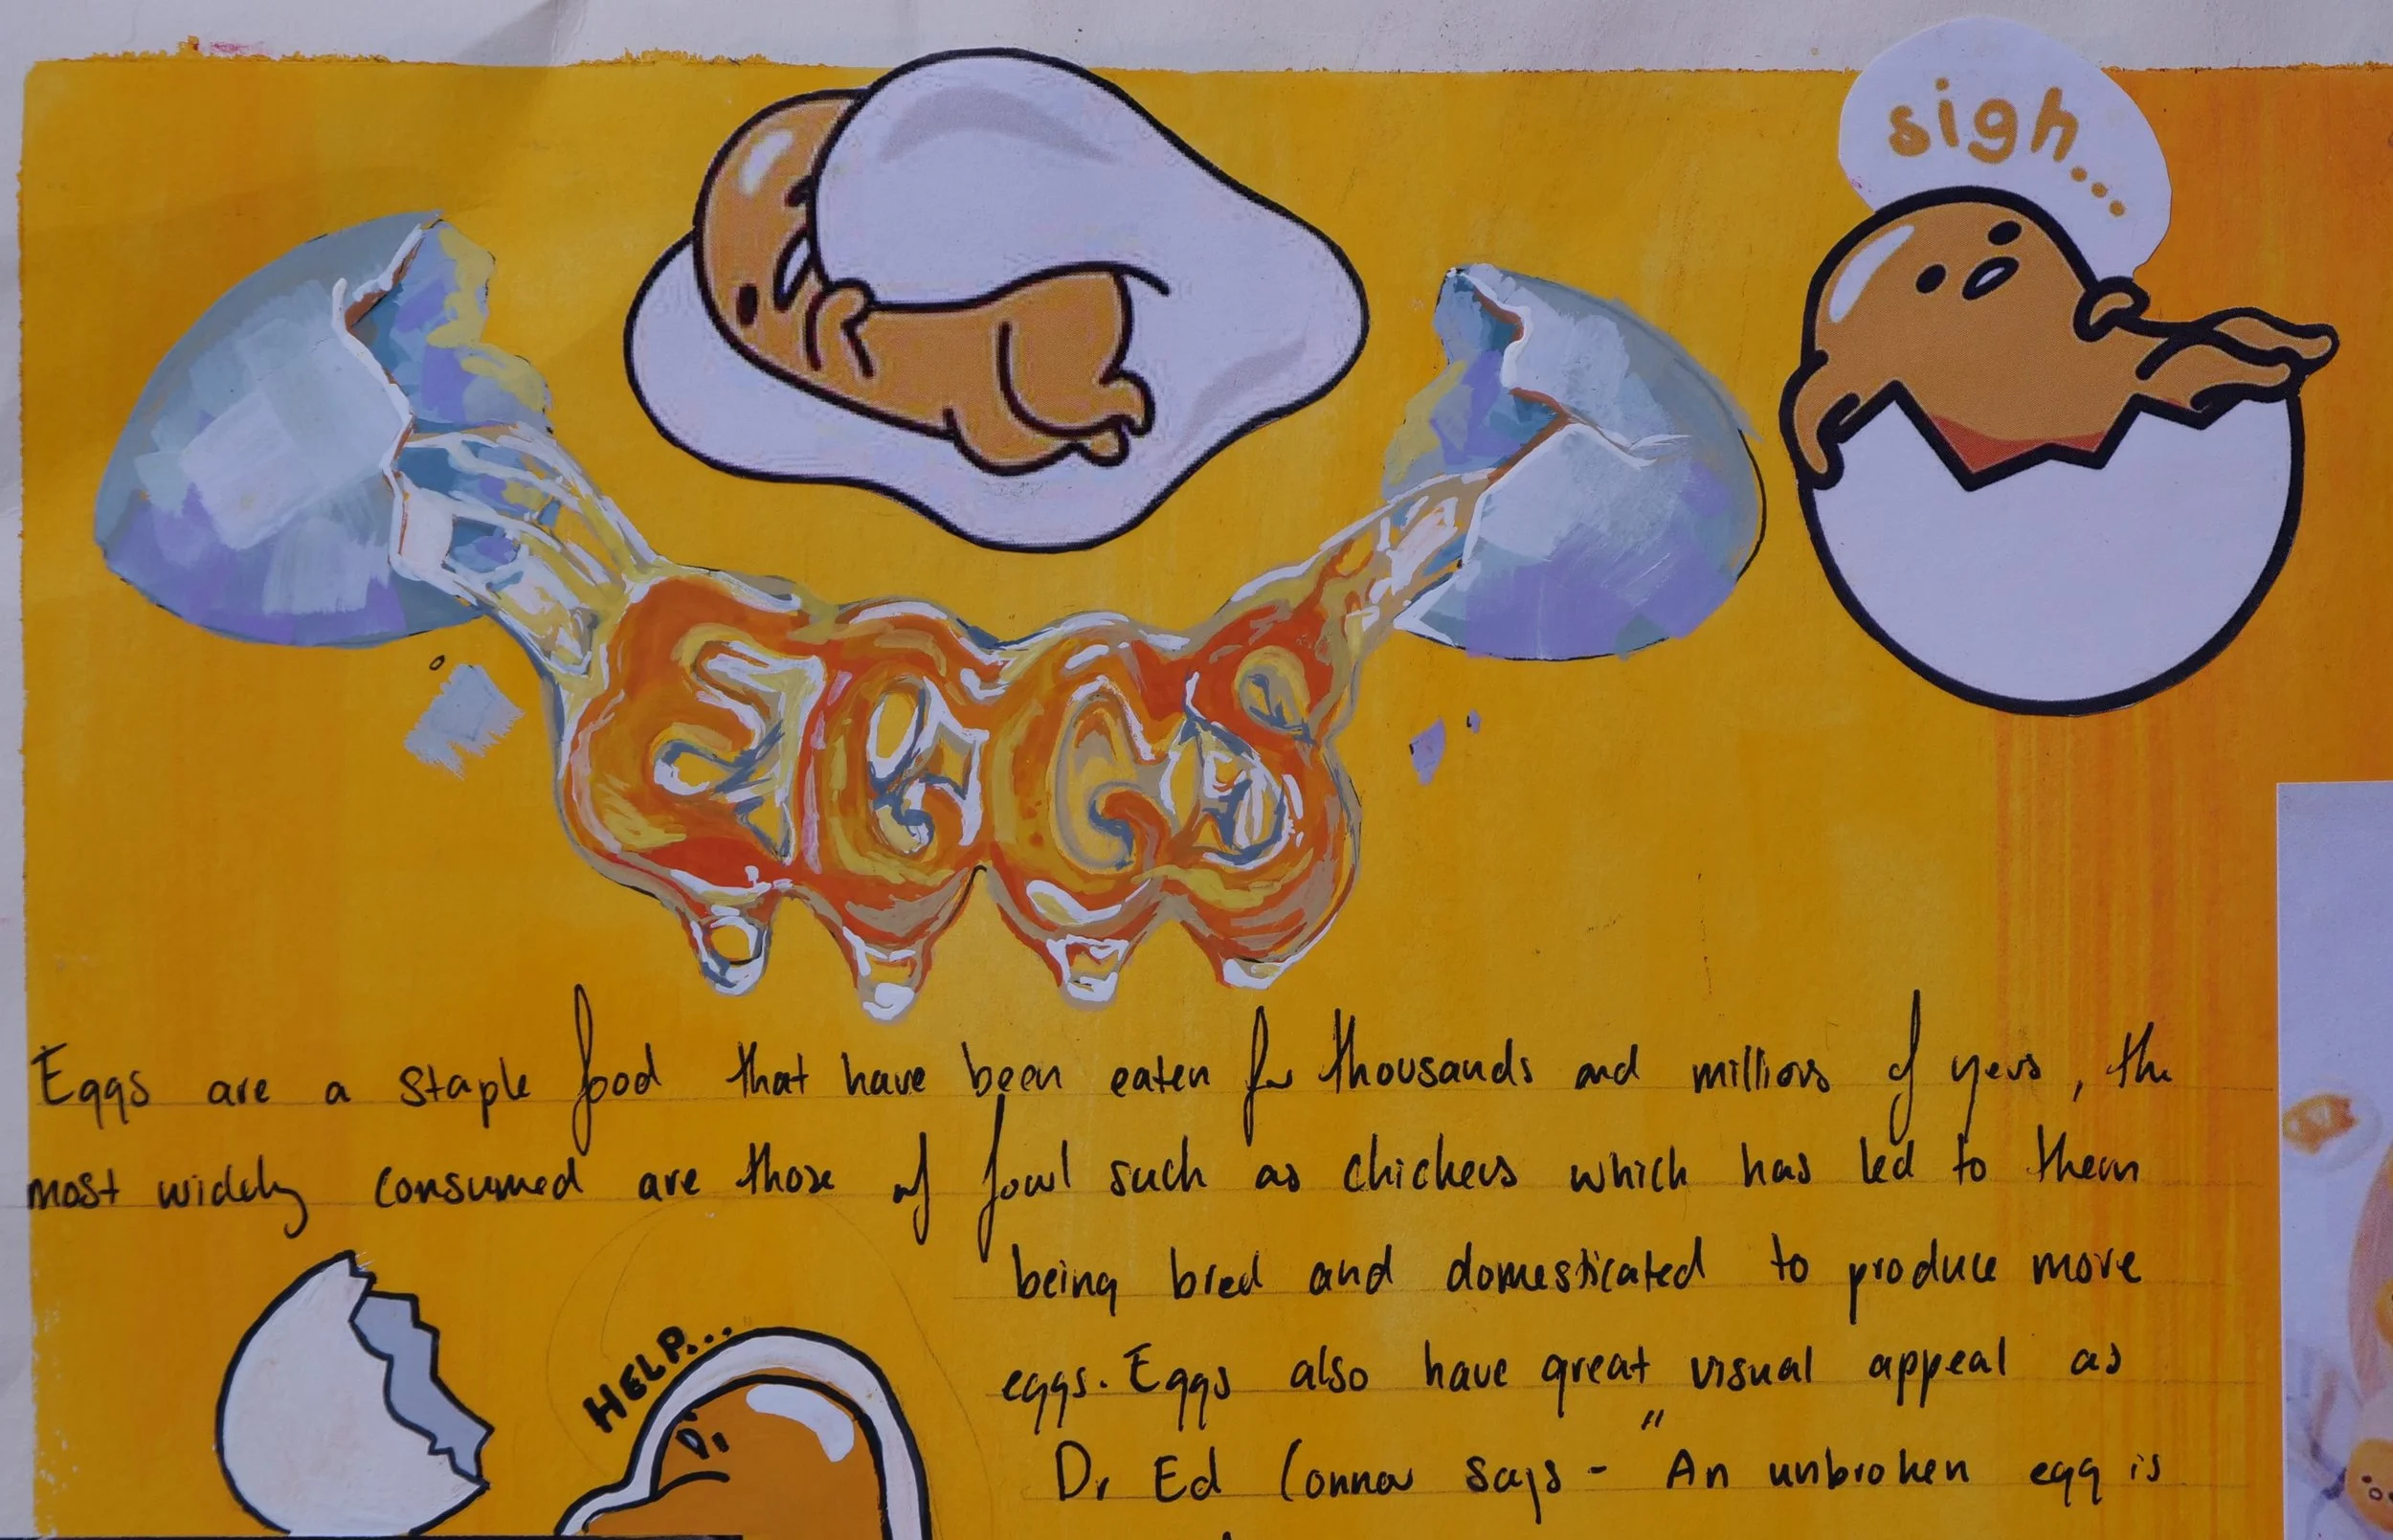 sigh...
EGGS
Eggs are a staple food that have been eaten for thousands and millions of years, the
most widely consumed are those of fowl such as chickens which has led to them
being bred and domesticated to produce more
eggs. Eggs also have great visual appeal as
HELP...
Dr Ed Connor says - "An unbroken egg is